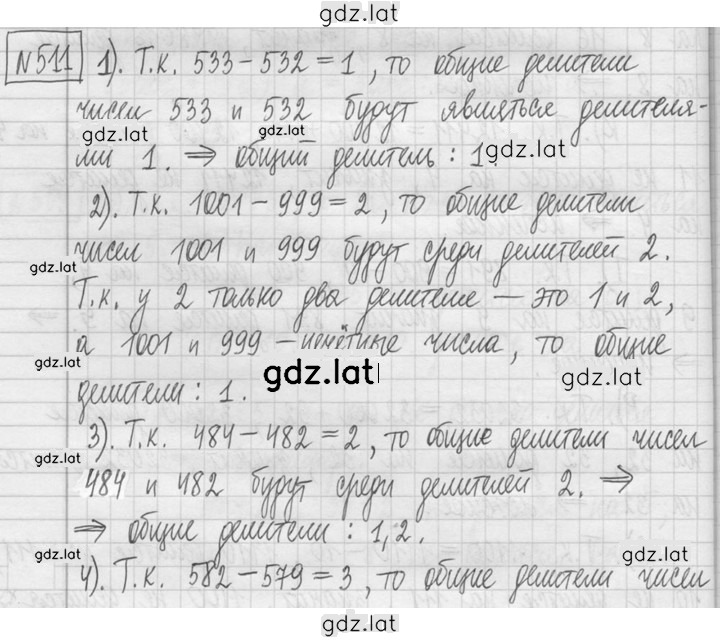 gdz.lat
№511 1). Т.к. 533-532=1, то общие делители
чисел 533 и 532 будут являться делителя-
gdz.lat gdz.lat
ми 1. ⇒ общий делитель: 1. gdz.lat
2). Т.к. 1001-999=2, то общие делители
чисел 1001 и 999 будут среди делителей 2.
gdz.lat
Т.к. у 2 только два делителя — это 1 и 2,
а 1001 и 999 - нечётные числа, то общие
gdz.lat gdz.lat gdz.lat
делители: 1.
3). Т.к. 484-482=2, то общие делители чисел
gdz.lat
484 и 482 будут среди делителей 2. ⇒
⇒ общие делители: 1,2.
gdz.lat gdz.lat
4). Т.к. 582-579=3, то общие делители чисел
gdz.lat